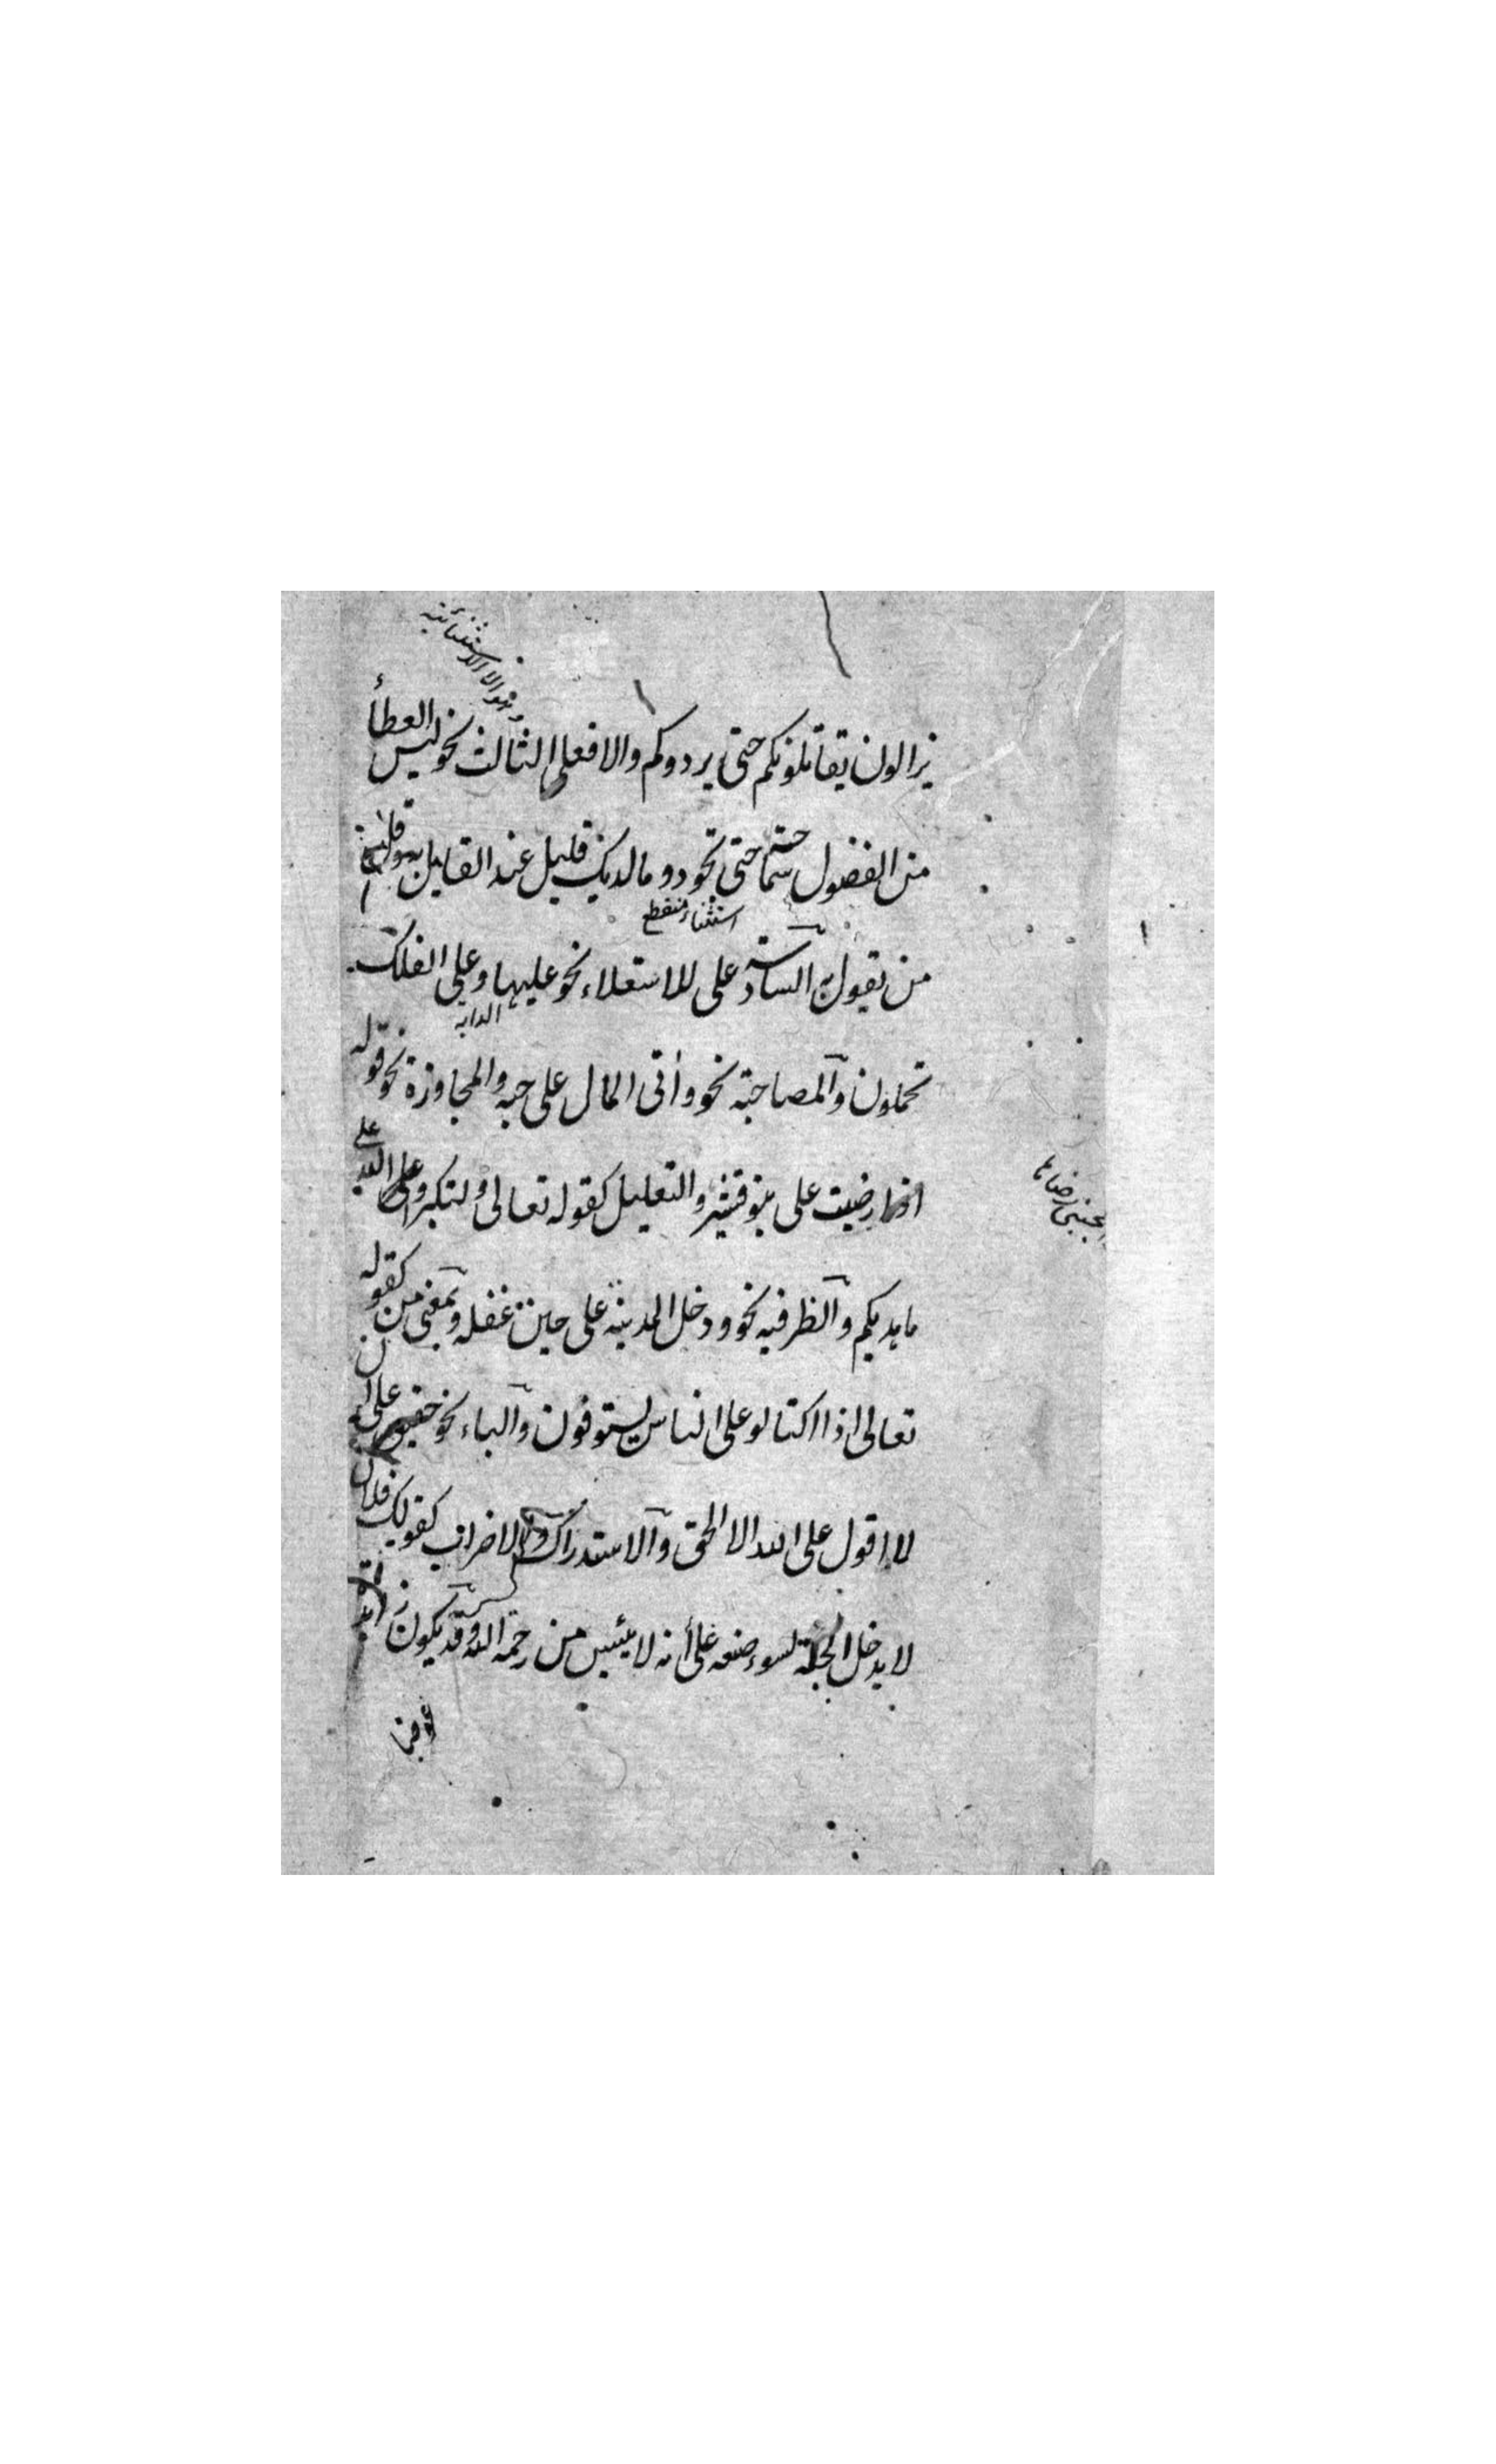 وهو الا الاستثنائية
يزالون يقاتلونكم حتى يردوكم والا فعلى الثالث نحو ليس العطأ
من الفضول سماحة حتى تجود وما لديك قليل عند القايل به وقل
استثناء منقطع
من يقول به السادسة على للاستعلاء نحو عليها وعلى الفلك
الدابه
تحملون والمصاحبة نحو واٰتى المال على حبه والمجاوزة نحو قوله
اذا رضيت على بنو قشير والتعليل كقوله تعالى ولتكبروا الله على
لاعجبنى رضاها
ما هديكم والظرفيه نحو ودخل المدينة على حين غفله وبمعنى من كقوله
تعالى اذا اكتالو على الناس يستوفون والباء نحو حقيق على ان
لا اقول على الله الا الحق والاستدراك والاضراب كقولك فلان
لا يدخل الجنة لسوء صنعه على أنه لا ييئس من رحمة الله وقد يكون زائدة
عوضا